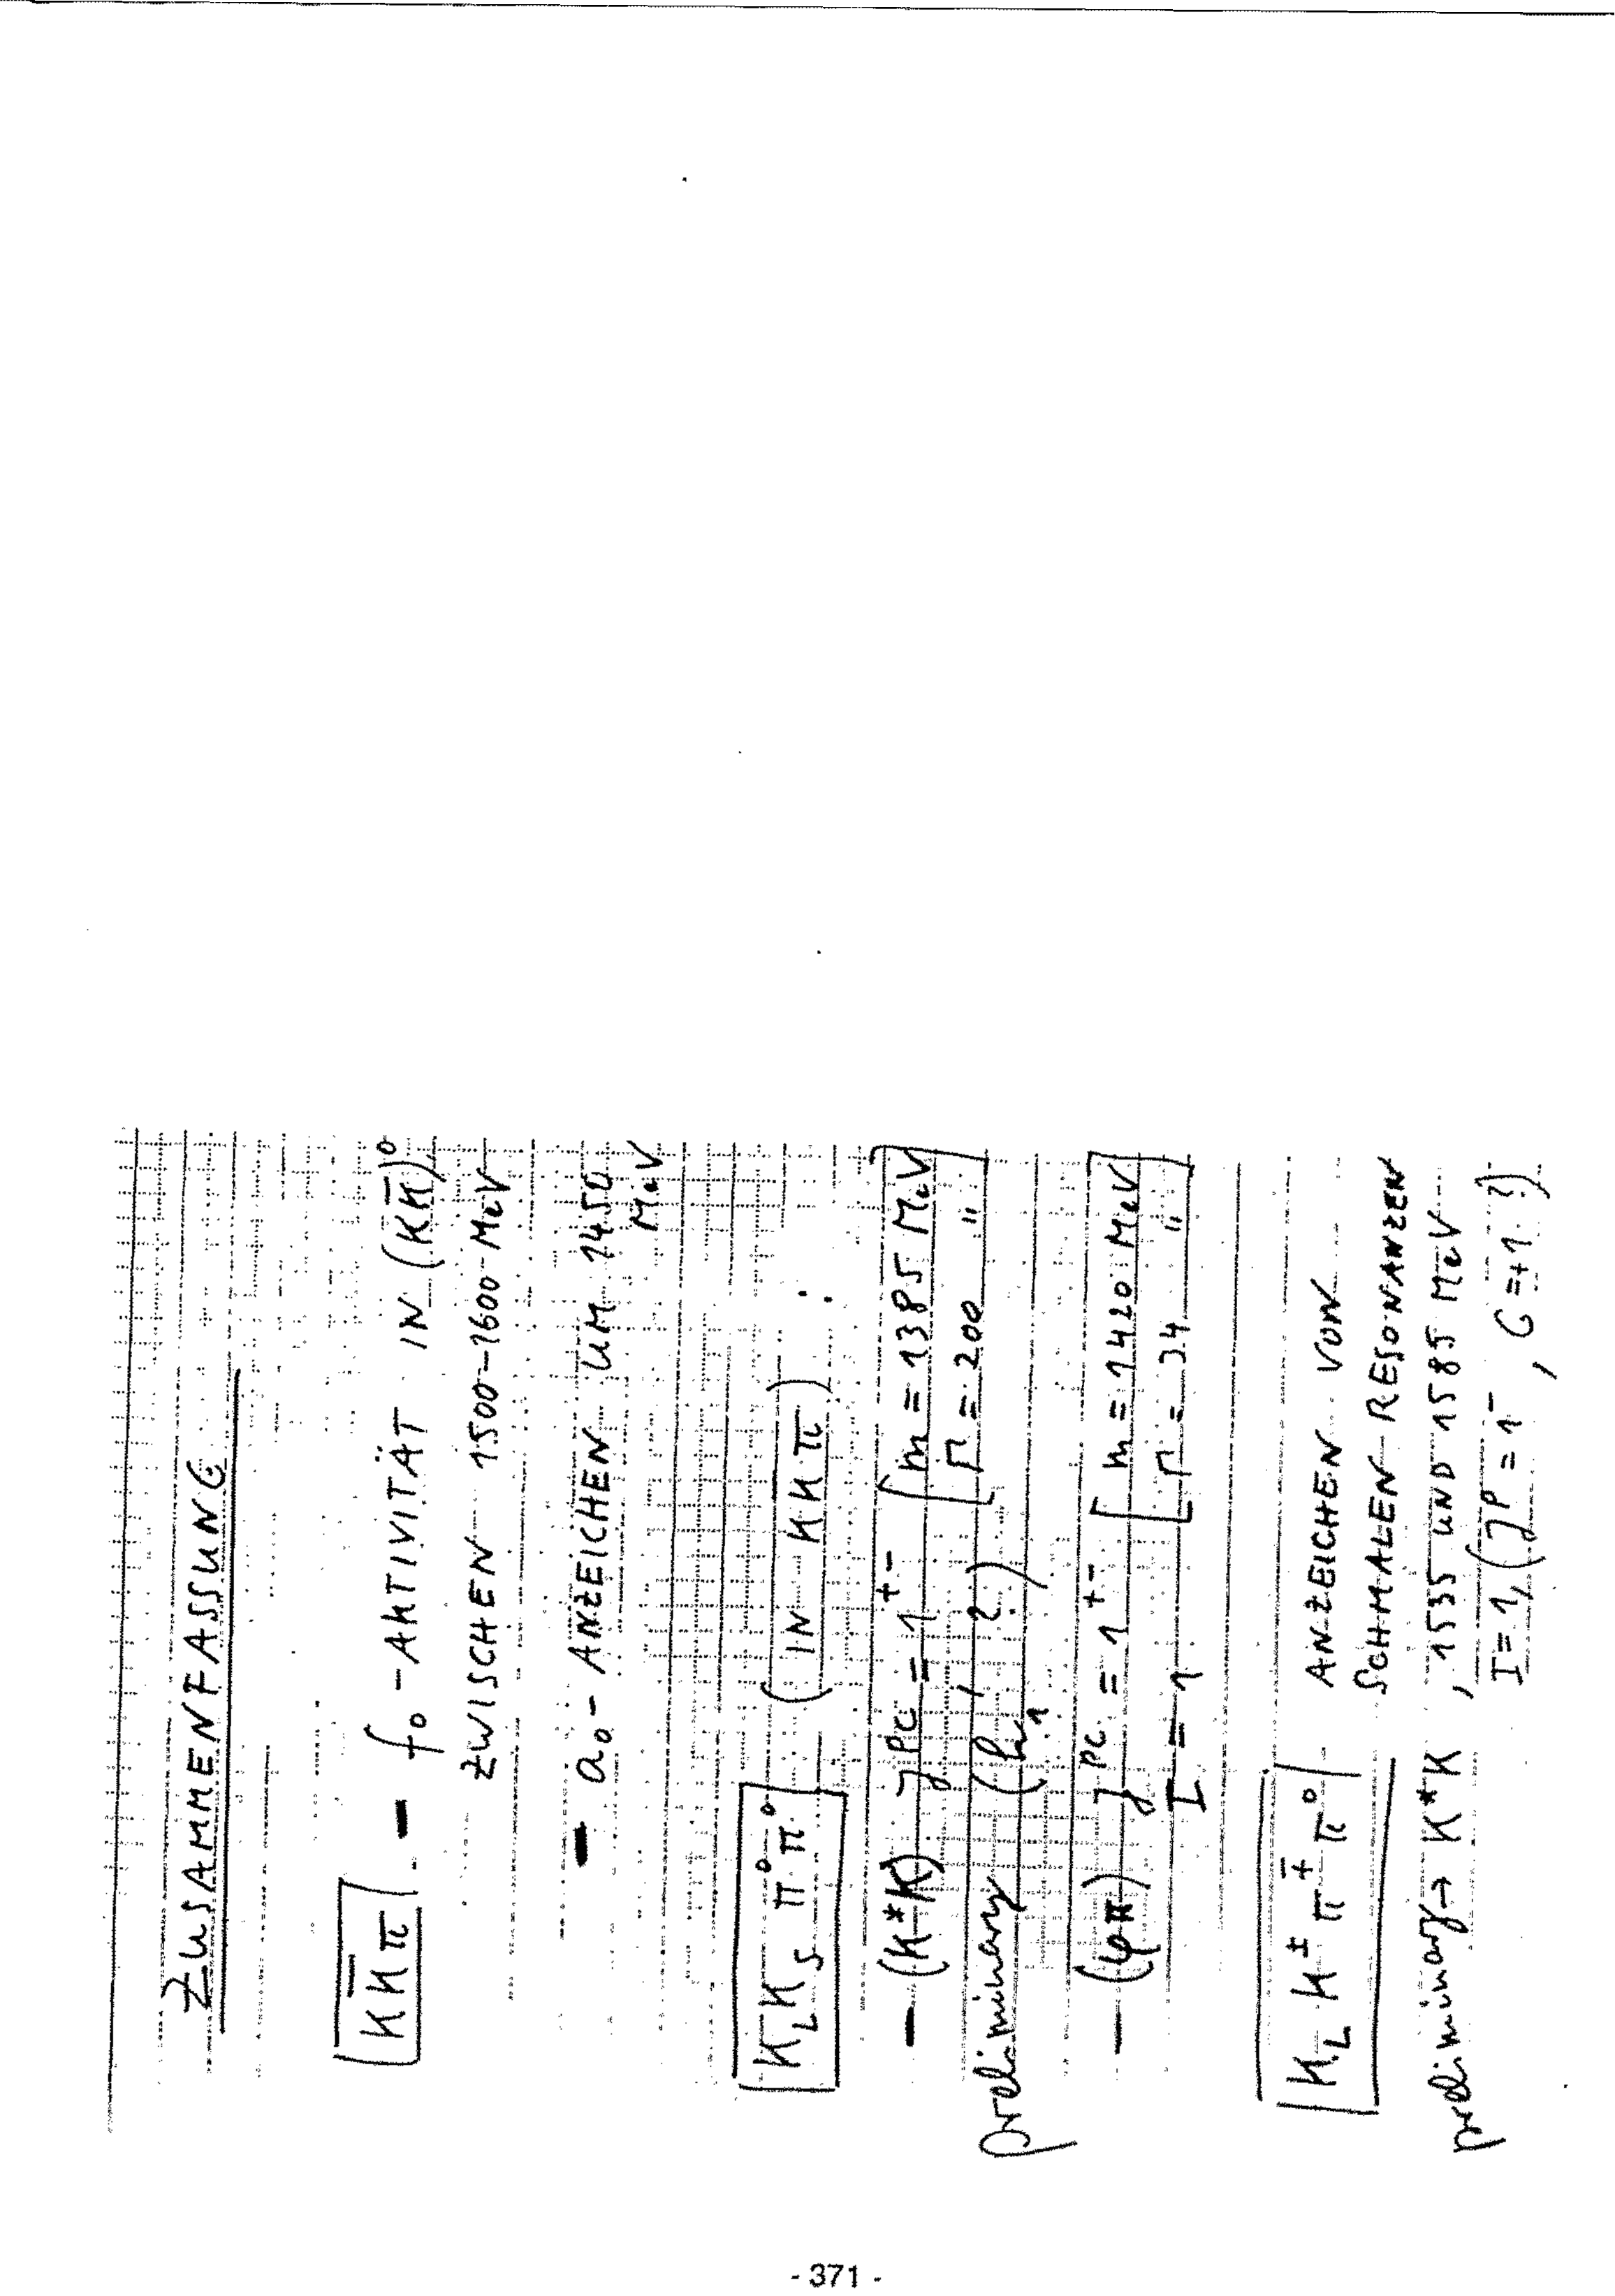 ZUSAMMENFASSUNG
K K̄ π — f₀ - AKTIVITÄT IN (K K̄)⁰
ZWISCHEN 1500-1600 MeV
— a₀ - ANZEICHEN UM 1450
MeV
K_L K_S π⁰ π⁰ (IN K K π) :
— (K*K) J^PC = 1⁺⁻ [ m = 1385 MeV ]
preliminary (h₁' ?) [ Γ = 200 " ]
— (φπ) J^PC = 1⁺⁻ [ m = 1420 MeV ]
I = 1 [ Γ = 34 " ]
K_L K^± π^∓ π⁰ ANZEICHEN VON
SCHMALEN RESONANZEN
preliminary → K*K , 1535 UND 1585 MeV
I = 1, (J^P = 1⁻ , C = +1 ?)
- 371 -